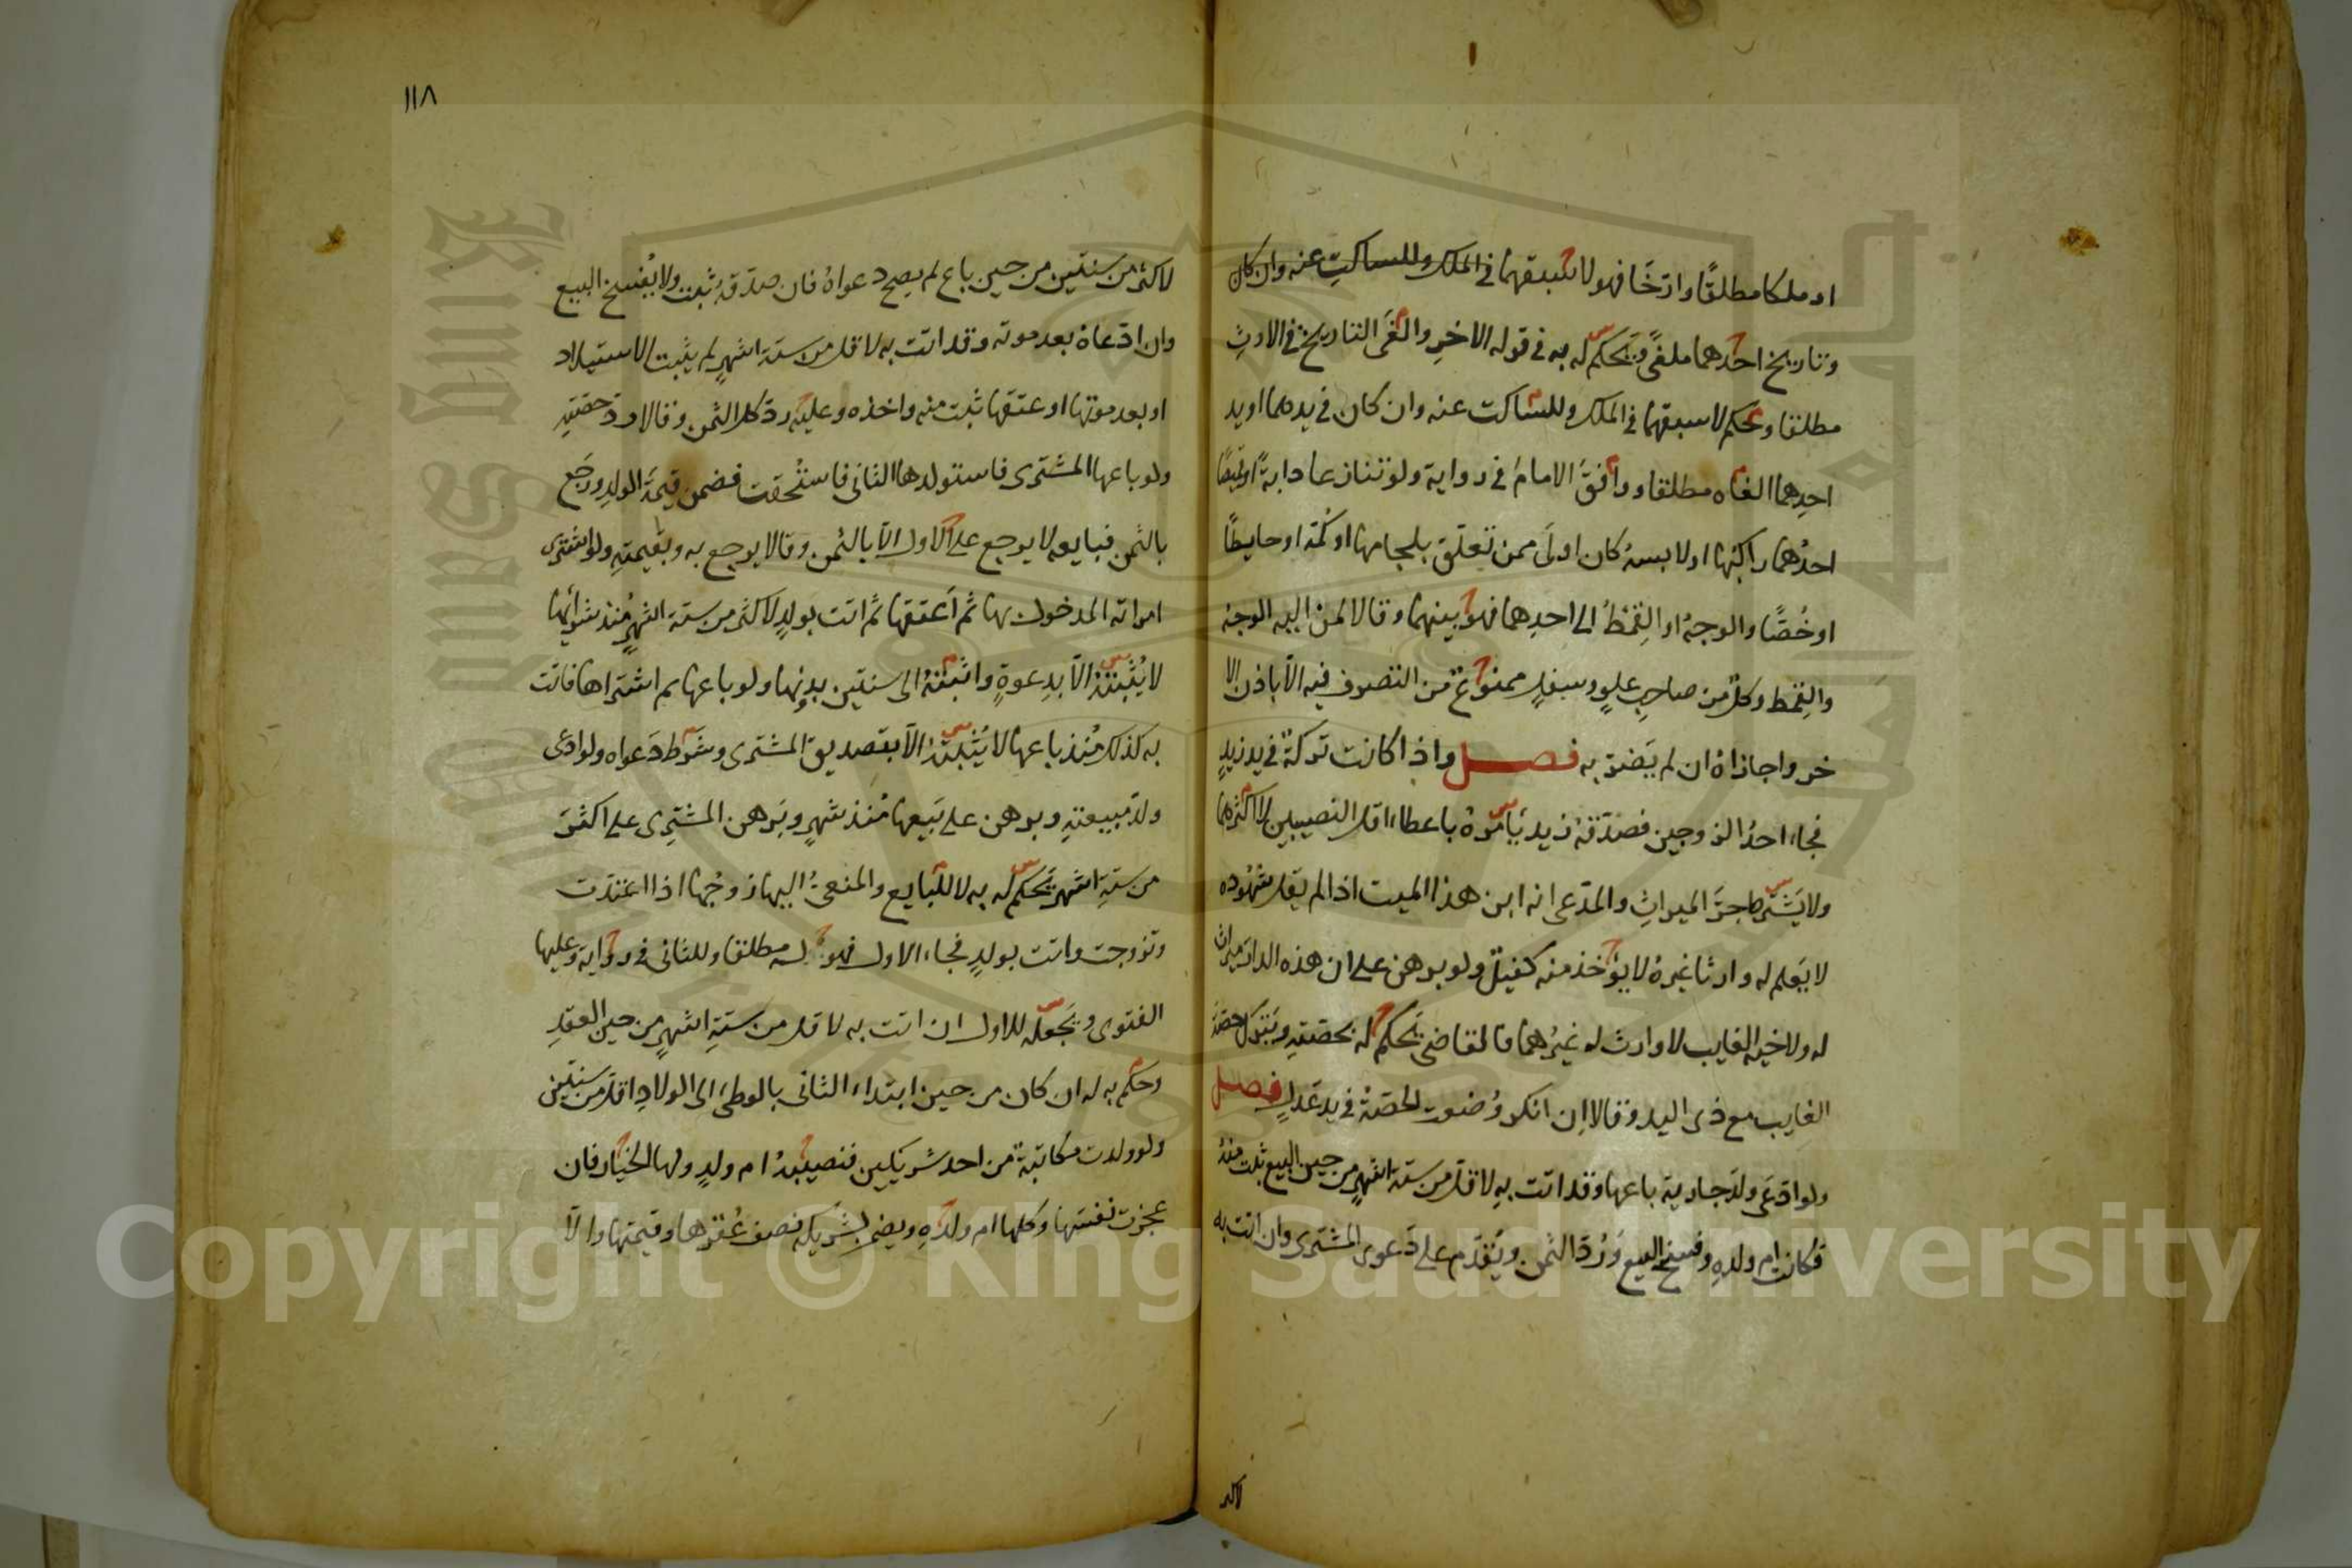 او ملكا مطلقًا وارّخَا فهو لاسبقهما في الملك وللساكتِ عنه وان كان
وتاريخ احدهما ملغىً ويحكم له به في قوله الاخرِ والغَى التاريخ في الارثِ
مطلقا وحكم لاسبقهما في الملك وللساكت عنه وان كان في يدهما او يد
احدِهما الغاه مطلقا ووافقَ الامامُ في رواية ولو تنازعا دابةً او قميصًا
احدُهما راكبُها او لابسهُ كان اولَى ممن تعلق بلجامها او كمّه او حايطًا
او خُصًّا والوجهُ او القِمطُ الى احدِهما فهو بينهما وقالا لمن اليه الوجهُ
والقِمط وكلٌ من صاحبِ علوٍ وسفلٍ ممنوعٌ من التصوف فيه الّا باذن الا
خر واجازاهُ ان لم يَضرّ به فصل واذا كانت تركةٌ في يد زيدٍ
فجاء احدُ الزوجين فصدّقهُ زيد يَامرهُ باعطاء اقل النصيبين لا اكثرهما
ولا يَشترط جرَّ الميراثِ والمدّعى انه ابن هذا الميت اذا لم يقل شهُوده
لا يَعلم له وارثا غيرهُ لا يؤخذ منه كفيلٌ ولو برهن على ان هذه الدار ميراث
له ولاخيه الغايب لا وارث له غيرُهما فالقاضى يَحكم له بحصّتهِ ويَترك حصّة
الغايب مع ذى اليد وقالا اِن انكر وُضعت الحصّة في يد عَدلٍ فصل
ولو ادّعَى ولدَ جارية باعها وقد اتت بهِ لاقل من ستة اشهرٍ من حين البيع ثبت منهُ
فكانت ام ولدهِ وفسخ البيع وَرُدّ الثمن ويُقدّم على دَعوى المشترى وان اتت به
لاكثر
١١٨
لاكثر من سنتين من حين باع لم يصح دعواهُ فان صدّقهُ ثبت ولا يُفسخ البيع
وان ادّعاهُ بعد موته وقد اتت به لاقل من ستة اشهرٍ لم يثبت الاستيلاد
او بعد موتها او عتقها ثبت منه واخذه وعليه ردّ كل الثمن وقالا ردّ حصّتهِ
ولو باعها المشترى فاستولدها الثانى فاستُحقت فضمن قيمَة الولدِ ورَجَع
بالثمن فبايعه لا يرجع على الاول الّا بالثمن وقالا يرجع به وبقيمتهِ ولو اشترى
امراته المدخول بها ثم اَعتقها ثم اتت بَولدٍ لاكثر من ستة اشهرٍ مُنذ شرائها
لا يُثبتهُ الّا بدعوةٍ واثبتهُ الى سنتين بدونها ولو باعها ثم اشتراها فاتت
به كذلك مُنذ باعها لا يُثبتهُ الّا بتصديق المشترى وشرط دَعواه ولو ادعى
ولدَ مبيعتهِ وبرهن على بَيعها مُنذ شهرٍ وبَرهن المشترِى على اكثرَ
من ستةِ اشهر يَحكم له به لا للبايع والمنعىُّ اليها زوجُها اذا اعتدّت
وتزوجت واتت بولدٍ فجاء الاول فهو له مطلقا وللثانى في رواية وعليها
الفتوى ويَجعله للاول ان اتت به لاقل من ستةِ اشهرٍ من حين العقدِ
وحكم به له ان كان من حين ابتداء الثانى بالوطىء الى الولادِ اقل من سنتين
ولو ولدت مكاتبةٌ من احد شريكين فنصيبهُ ام ولدٍ ولها الخيار فان
عجزت نفسَها وكلها ام ولدهِ ويضمن لشريكه نصف عُقرها وقيمتها والّا